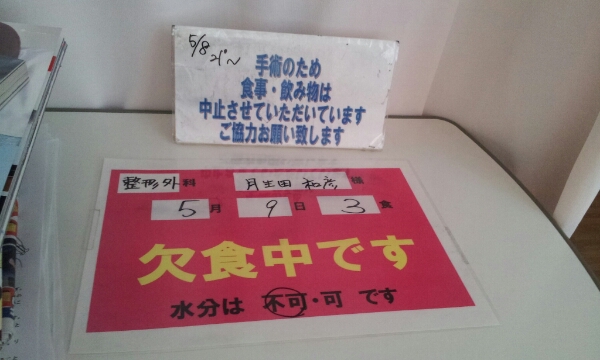 5/8 21°~
手術のため
食事・飲み物は
中止させていただいています
ご協力お願い致します
整形外科 月生田 和彦 様
5月 9日 3食
欠食中です
水分は 不可・可 です